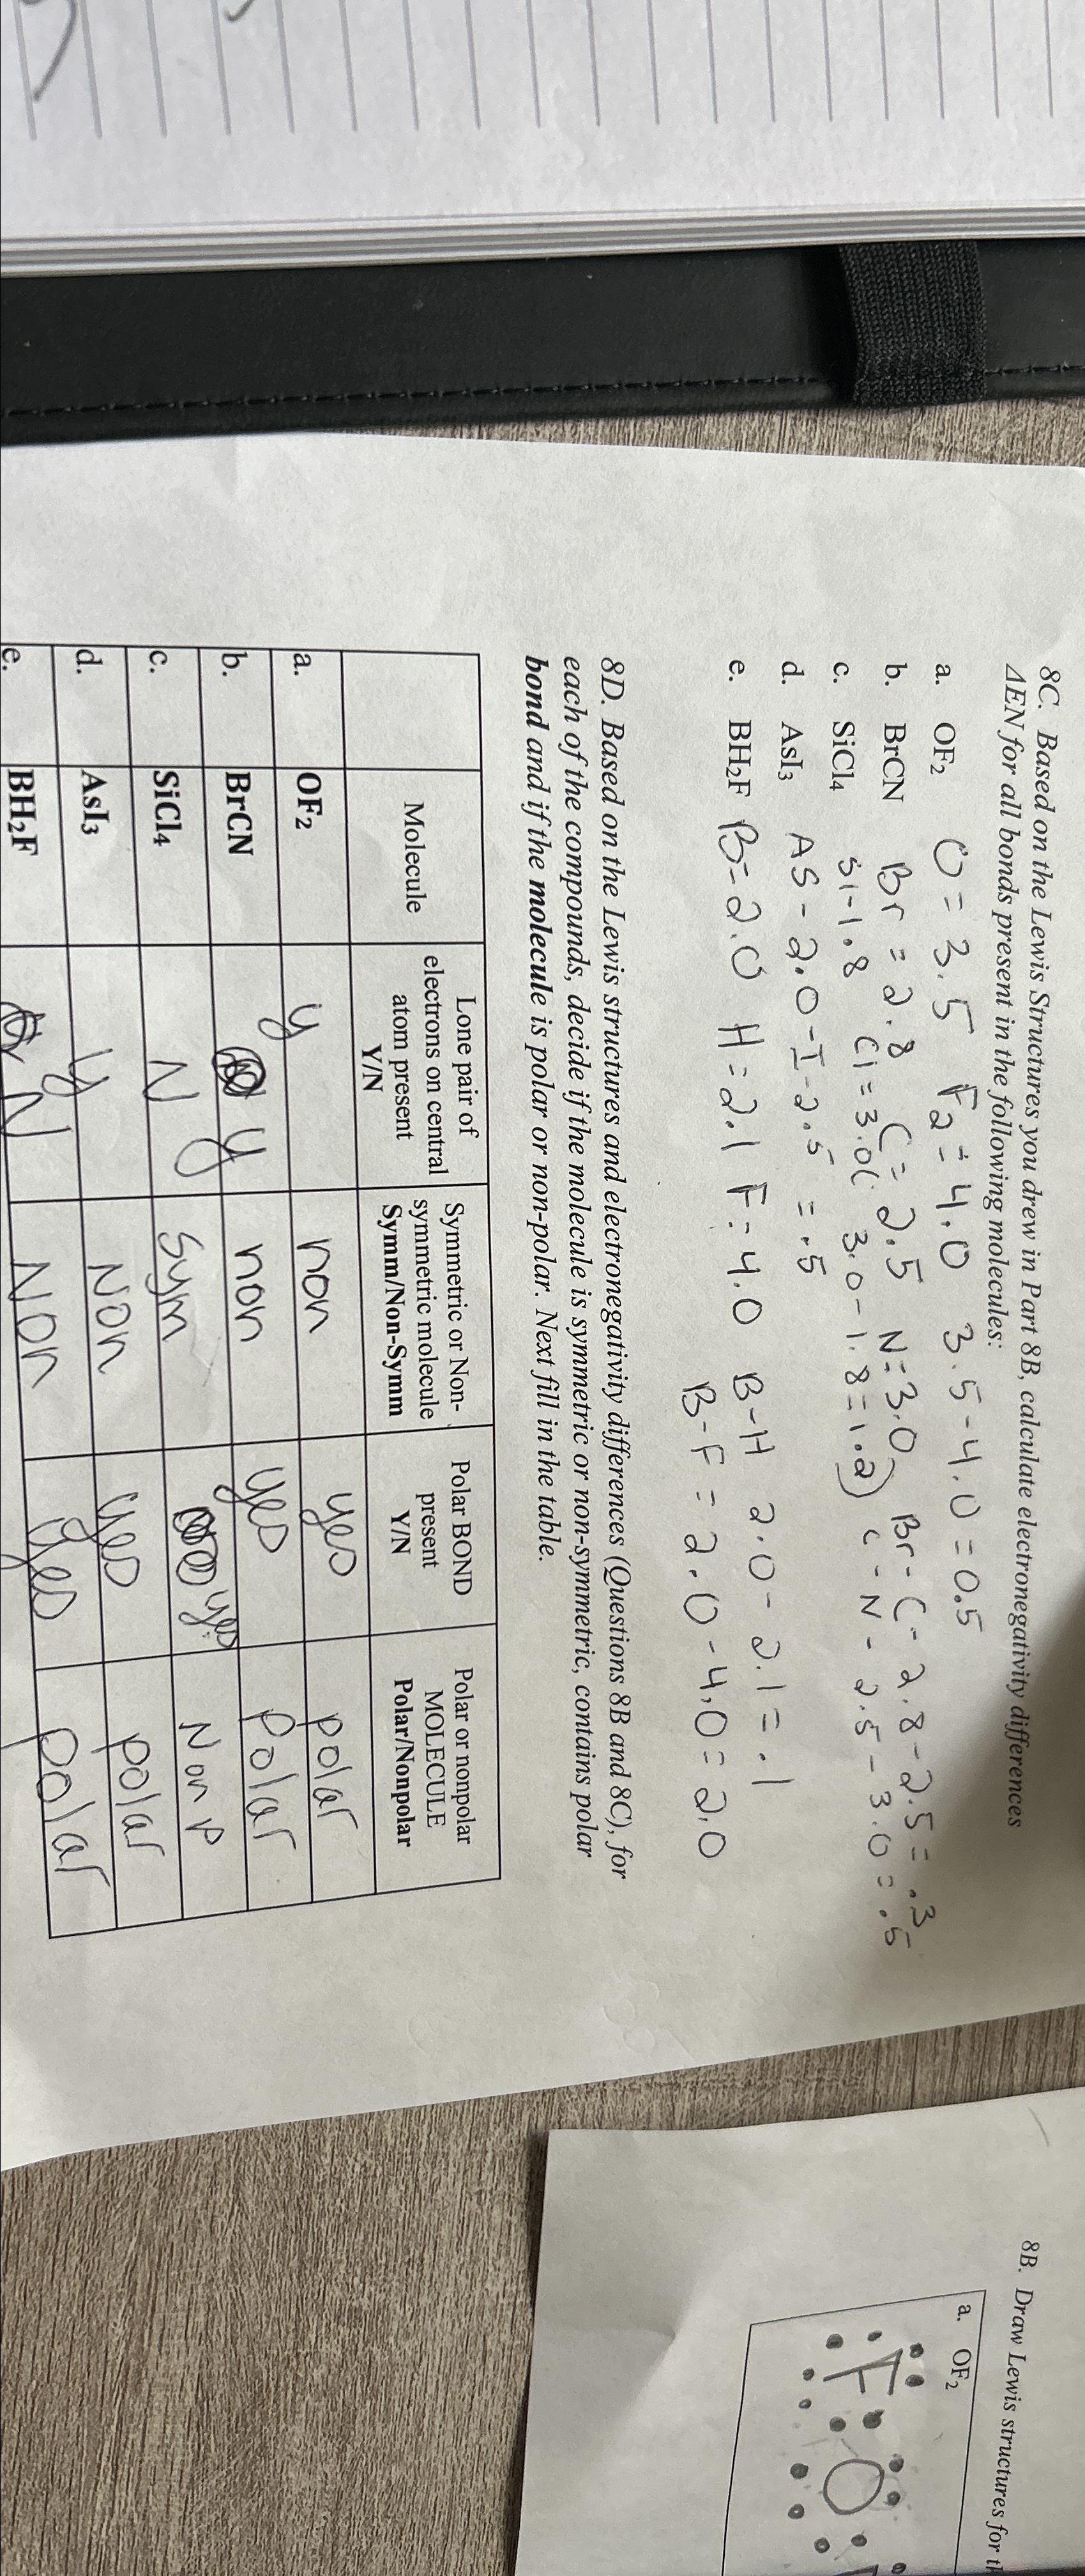 8C. Based on the Lewis Structures you drew in Part 8B, calculate electronegativity differences
ΔEN for all bonds present in the following molecules:
a. OF₂ O = 3.5 F₂ = 4.0 3.5-4.0 = 0.5
b. BrCN Br = 2.8 C = 2.5 N = 3.0 Br-C-2.8-2.5 = .3
C-N-2.5-3.0 = .5
c. SiCl₄ Si-1.8 Cl = 3.0( 3.0-1.8=1.2)
d. AsI₃ AS-2.0-I-2.5 = .5
e. BH₂F B=2.0 H=2.1 F=4.0 B-H 2.0-2.1 = .1
B-F = 2.0-4.0 = 2.0
8D. Based on the Lewis structures and electronegativity differences (Questions 8B and 8C), for
each of the compounds, decide if the molecule is symmetric or non-symmetric, contains polar
bond and if the molecule is polar or non-polar. Next fill in the table.
Molecule
Lone pair of
electrons on central
atom present
Y/N
Symmetric or Non-
symmetric molecule
Symm/Non-Symm
Polar BOND
present
Y/N
Polar or nonpolar
MOLECULE
Polar/Nonpolar
a. OF₂ y non yes polar
b. BrCN y non yes Polar
c. SiCl₄ N Sym yes Non P
d. AsI₃ y Non yes polar
e. BH₂F N Non yes polar
8B. Draw Lewis structures for
a. OF₂
F O